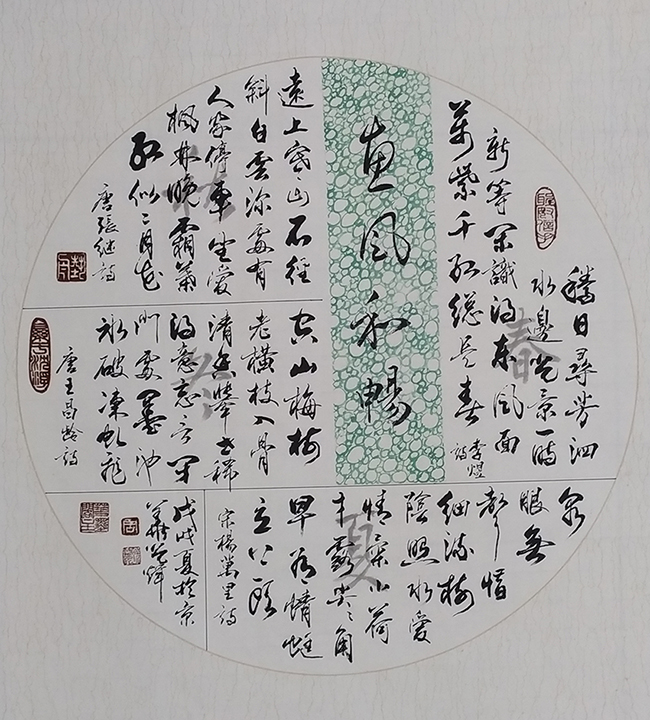 勝日尋芳泗
水邊光景一時
新等闲識得東風面
萬紫千紅總是春
李煜詩
春
惠風和暢
遠上寒山石徑
斜白雲深處有
人家停車坐愛
楓林晚霜葉
紅似二月花
唐張继詩
空山梅樹
老橫枝入骨
清香舉世稀
得意忘言
門處墨池
冰破凍虬飛
唐王昌齡詩
冬
泉
眼無
聲惜
細流樹
陰照水愛
情柔小荷
才露尖々角
早有蜻蜓
立上頭
宋楊萬里詩
夏
戊戌夏於京